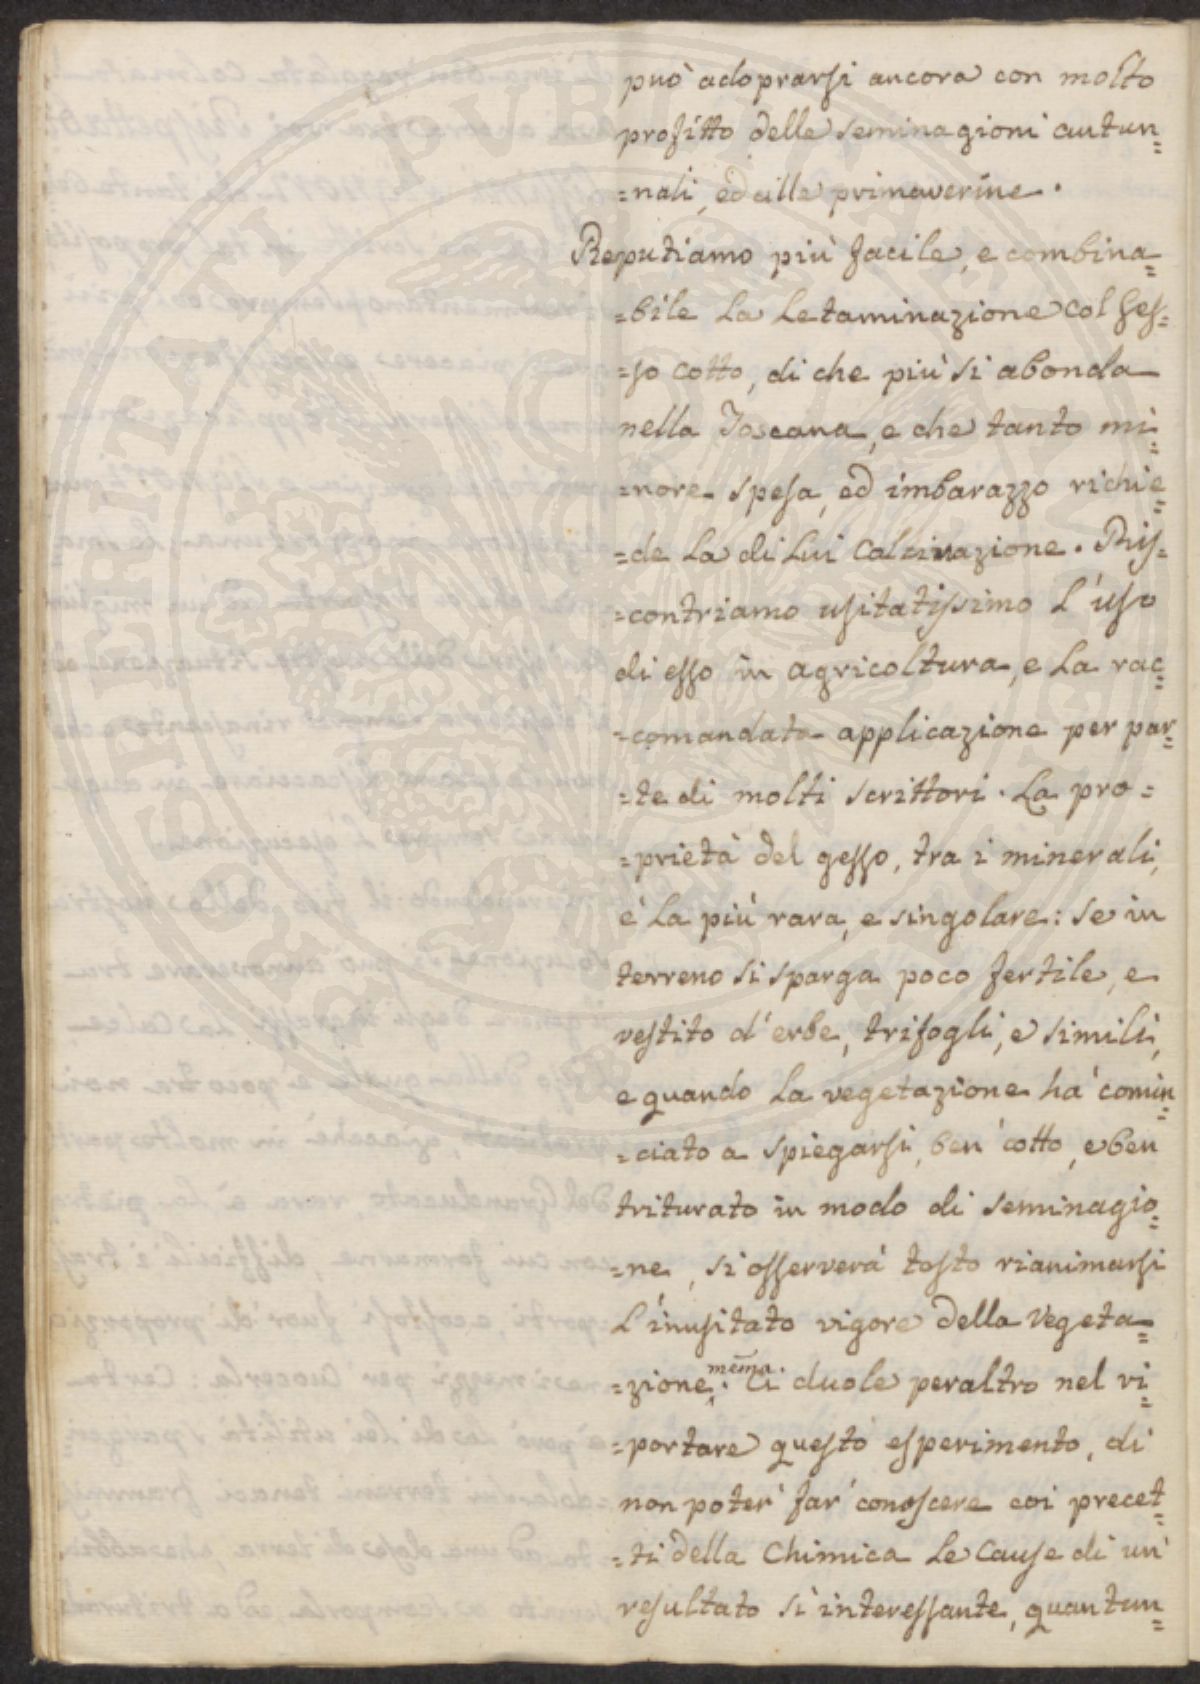 può adoprarsi ancora con molto
profitto delle seminagioni autun=
=nali, ed alle primaverine.
Reputiamo più facile, e combina=
=bile la Letaminazione col Ges=
=so cotto, di che più si abonda
nella Toscana, e che tanto mi=
=nore spesa, ed imbarazzo richie=
=de La di Lui Calcinazione. Ris=
=contriamo usitatissimo L'uso
di esso in agricoltura, e La rac=
=comandata applicazione per par=
=te di molti scrittori. La pro=
=prietà del gesso, tra i minerali,
è La più rara, e singolare: se in
terreno si sparga poco fertile, e
vestito d'erbe, trifogli, e simili,
e quando La vegetazione hà comin=
=ciato a spiegarsi, ben cotto, e ben
triturato in modo di seminagio=
=ne, si osserverà tosto rianimarsi
L'inusitato vigore della Vegeta=
=zione mema. Ci duole peraltro nel ri=
=portare questo esperimento, di
non poter far conoscere coi precet=
=ti della Chimica Le Cause di un
resultato sì interessante, quantun=
PROSPERITATI PUBLICAE AUGENDAE